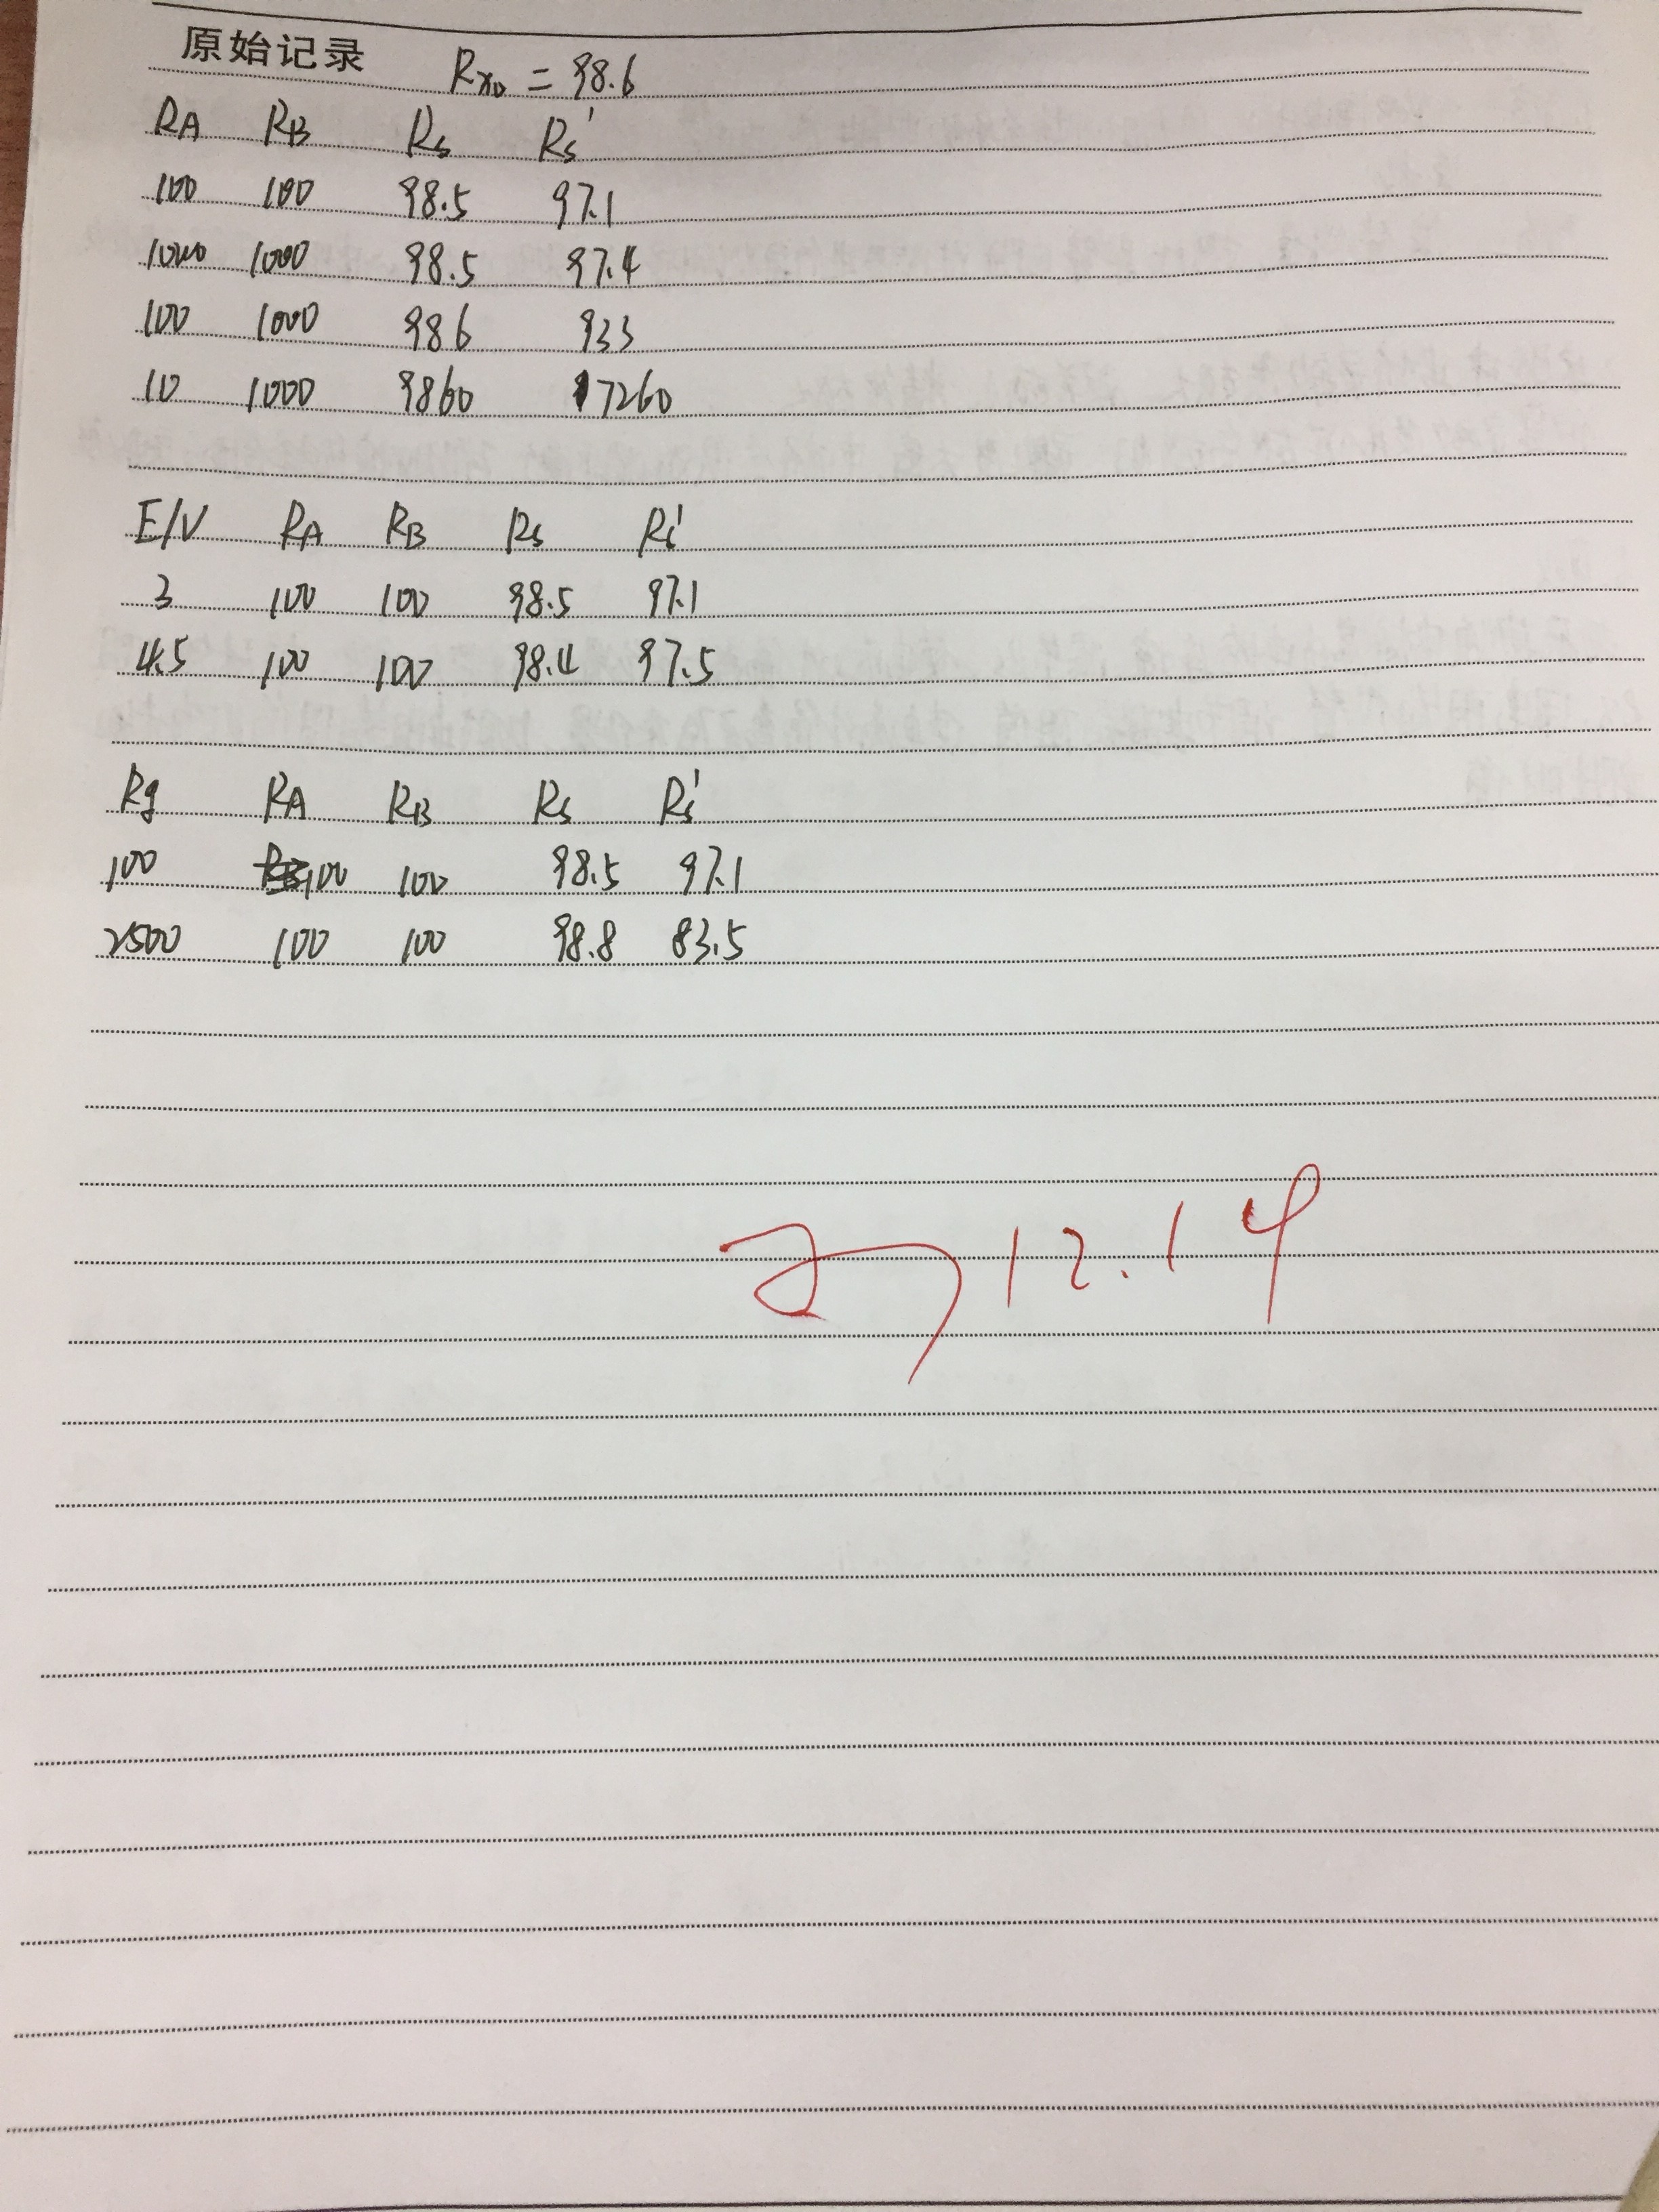 原始记录 Rx0 = 98.6
RA RB Rs Rs'
100 100 98.5 97.1
1000 1000 98.5 97.4
100 1000 986 933
10 1000 9860 7260
E/V RA RB Rs Rs'
3 100 100 98.5 97.1
4.5 100 100 98.4 97.5
Rg RA RB Rs Rs'
100 100 100 98.5 97.1
2500 100 100 98.8 83.5
12.14